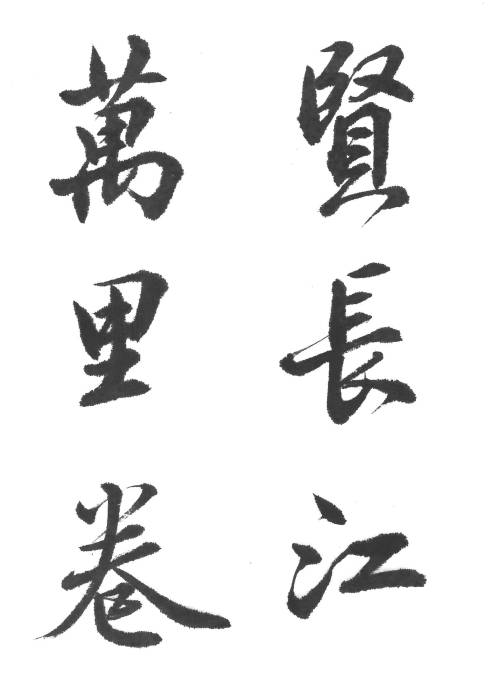 賢長江
萬里卷